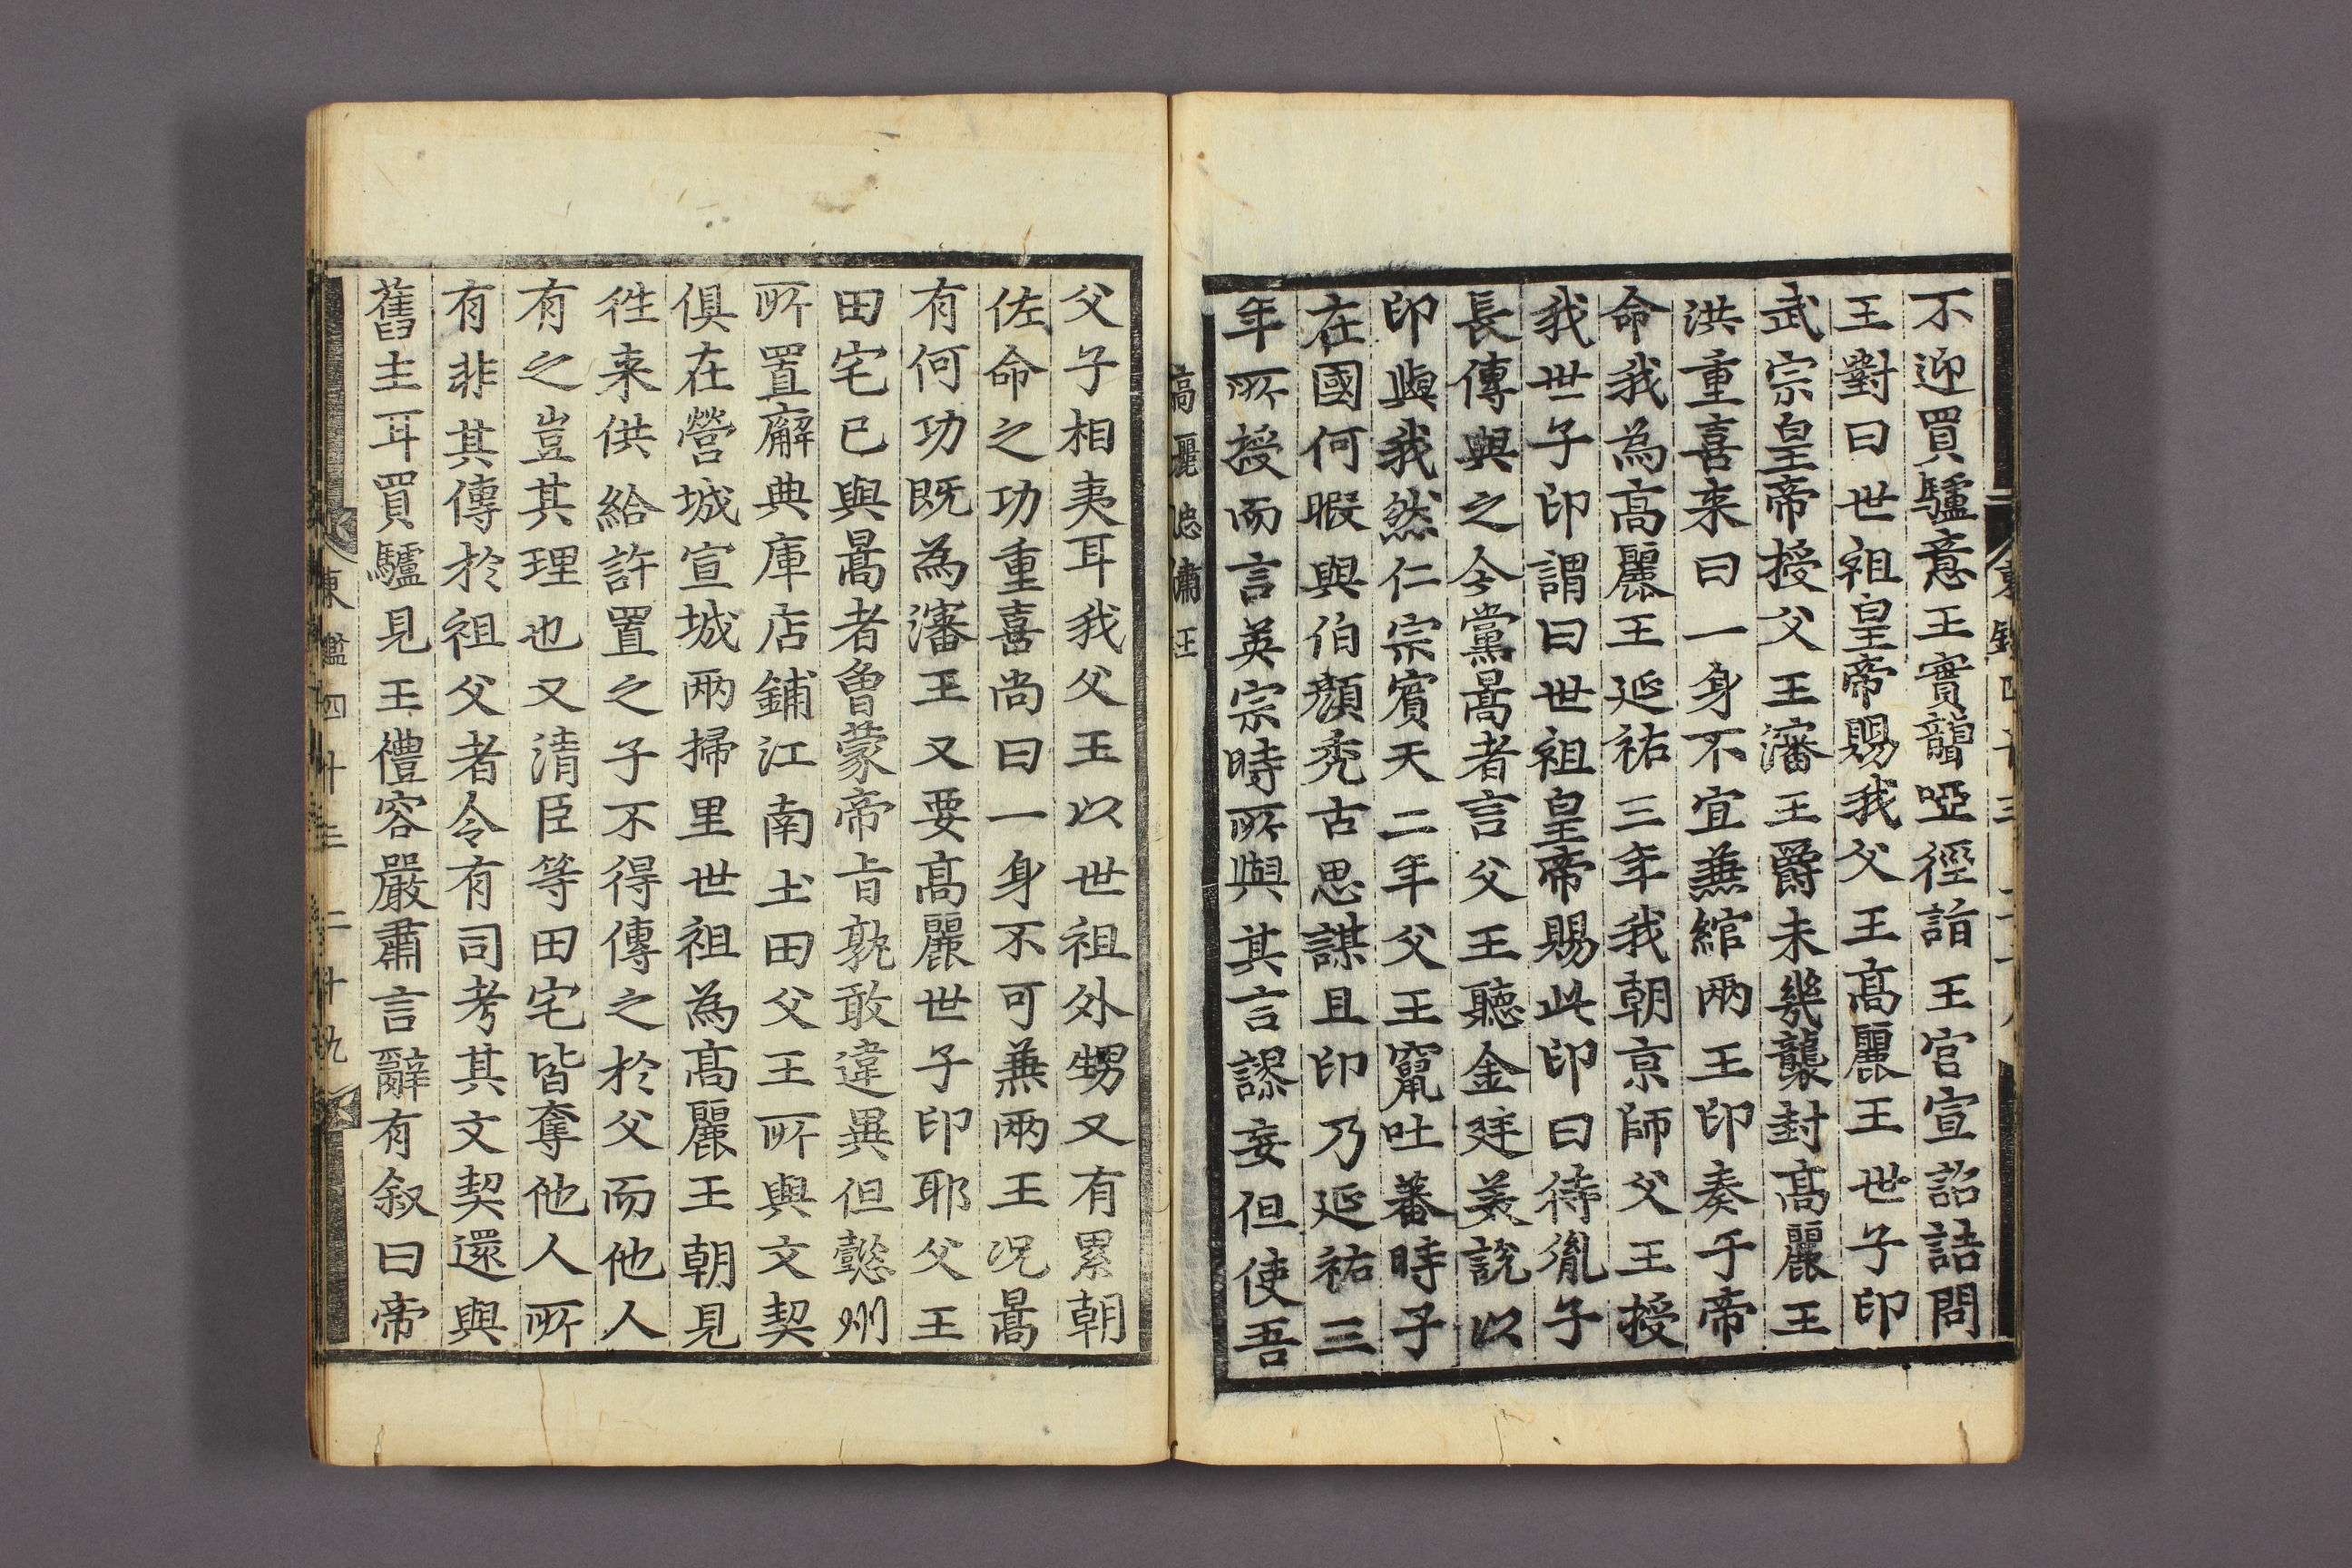 不迎買驢意王實聾啞徑詣王宮宣詔詰問
王對曰世祖皇帝賜我父王高麗王世子印
武宗皇帝授父王瀋王爵未幾襲封高麗王
洪重喜来曰一身不宜兼綰兩王印奏于帝
命我為高麗王延祐三年我朝京師父王授
我世子印謂曰世祖皇帝賜此印曰待胤子
長傳與之今黨暠者言父王聽金廷美說以
印與我然仁宗賓天二年父王竄吐蕃時子
在國何暇與伯顏禿古思謀且印乃延祐三
年所授而言英宗時所與其言謬妄但使吾
高麗忠肅王
父子相夷耳我父王以世祖外甥又有累朝
佐命之功重喜尚曰一身不可兼兩王况暠
有何功既為瀋王又要高麗世子印耶父王
田宅已與暠者曾蒙帝旨孰敢違異但懿州
所置廨典庫店鋪江南土田父王所與文契
俱在營城宣城兩掃里世祖為高麗王朝見
徃来供給許置之子不得傳之於父而他人
有之豈其理也又清臣等田宅皆奪他人所
有非其傳於祖父者令有司考其文契還與
舊主耳買驢見王禮容嚴肅言辭有叙曰帝
東鑑四十三 二十九